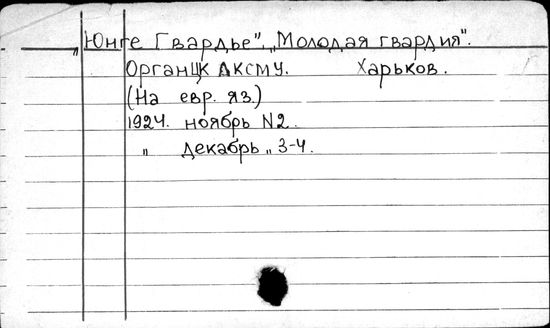 „Юнге Гвардье", „Молодая гвардия".
Орган ЦК ЛКСМУ. Харьков.
(На евр. яз.)
1924. ноябрь N2.
„ декабрь „ 3-4.